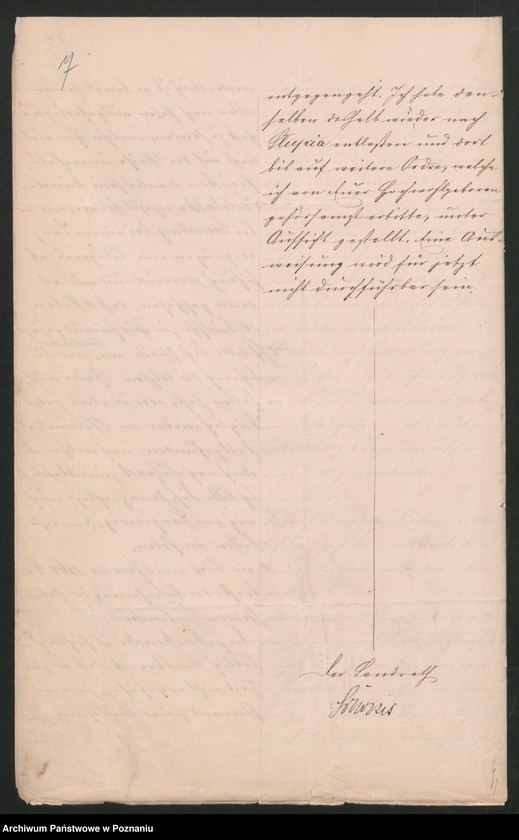 7
entgegengeht. Ich habe den-
selben deshalb wieder nach
Slupia entlaßen und dort
bis auf weitere Ordre, welche
ich von Euer Hochwohlgeboren
gehorsamst erbitte, unter
Aufsicht gestellt. Eine Aus-
weisung wird für jetzt
nicht durchführbar sein.
Der Landrath
Archiwum Państwowe w Poznaniu